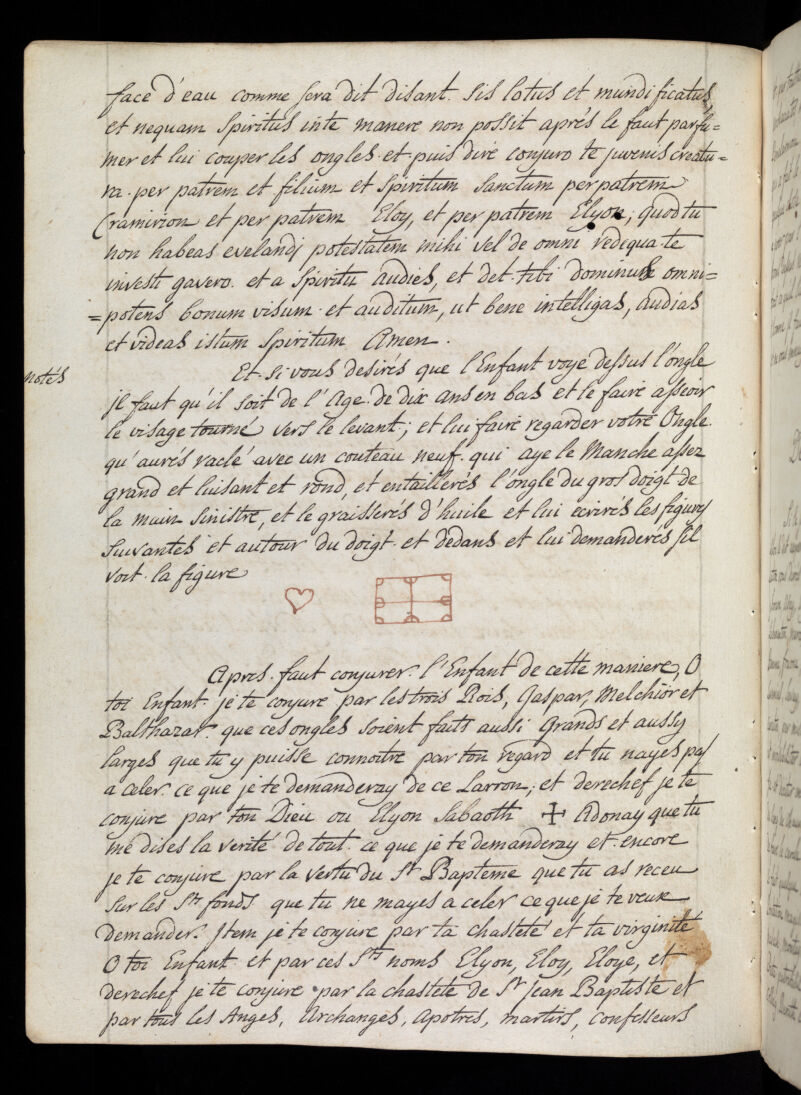 face d'eau comme sera dit disant. Sis lotus et mundificatus
et nequam Spiritus inte manere non possit aprés le faut parfu=
mer et lui couper les ongles. et puis dire conjuro te juvenis creatu=
ra. per patrem et filium et Spiritum Sanctum per patrem
Cramirion et per patrem Eloy, et per patrem Elyon, quod tu
non habeas evelandj potestatem mihi vel de omni rediqua te
investi gavero. et a Spiritu Audies, et det tibi dominus omni=
=potens bonum visum et auditum, ut bene intelligas, Audias
et videas istum Spiritum Amen.
notés
Et. Si vous desirés que l'Enfant voye dessus l'ongle
jl faut qu'il soit de l'Age de dix ans en bas et le faire asseoir
le visage tourné vers le levant; et lui faire regarder votre Ongle.
qu'aurés raclé avec un couteau neuf. qui aye le Manche assez
grand et luisant et rond, et entaillerés l'ongle du gros doigt de
la main Sinistre, et le graisserés d'huile et lui ecrirés les figures
Suivantes et autour du doigt et dedans et lui demanderés s'il
voit la figure
Apres. faut conjurer. l'Enfant de cette maniere, O
toi Enfant. je te conjure par les trois Rois, Gaspar, Melchior et
Balthazar. que ces ongles soient faits aussi Grands et aussy
larges que tu y puisse connoitre par ton regard et tu nayes pas
a celer ce que je te demanderay de ce Larron; et derechef je te
conjure par ton Dieu ou Elyon Sabaoth + Adonay que tu
me dises la verité de tout ce que je te demanderay et. encore
je te conjure par la vertu du St Bapteme que tu as receu
Sur les Sts fonds que tu ne mayes a celer ce que je te veux
demander. Jtem je te conjure par ta chasteté et ta virginité
O toi Enfant. et par ces Sts noms Elyon, Eloy, Eloye, et
derechef je te conjure par la chastete de St Jean Baptiste et
par tous les Anges, Archanges, apotres, martirs, Confesseurs